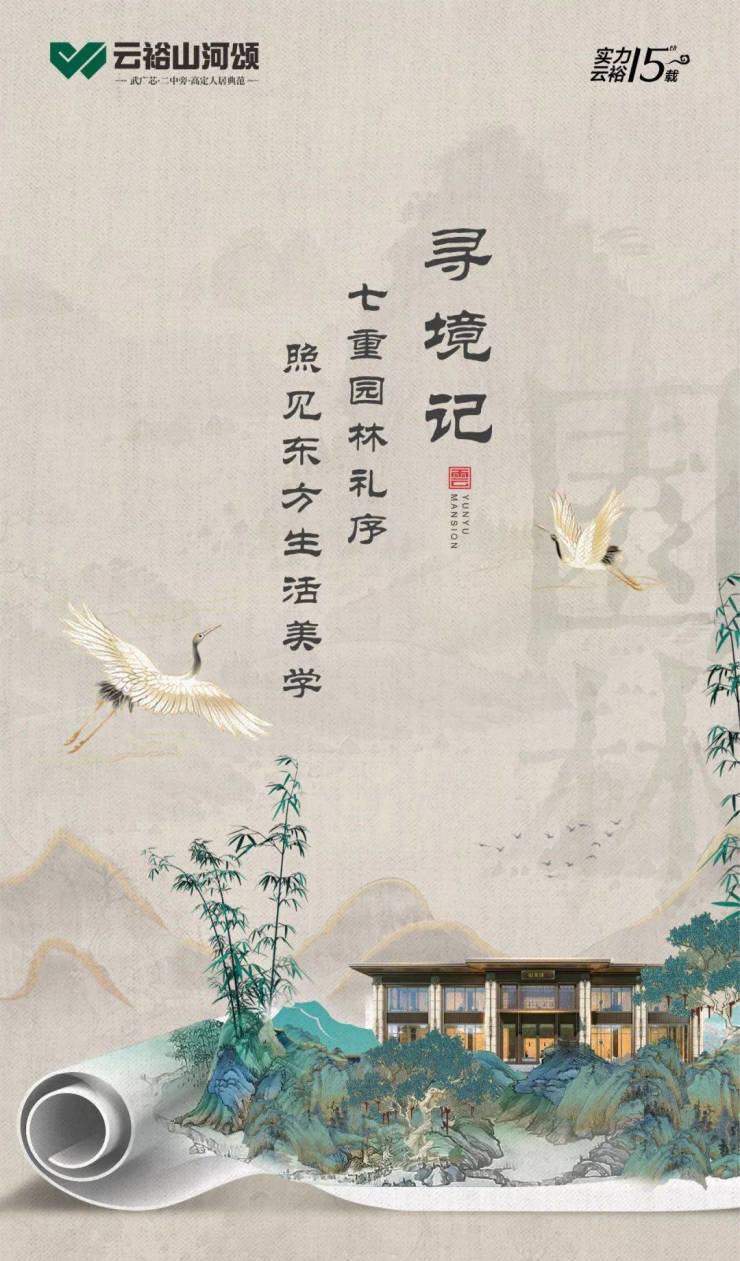 云裕山河颂
武广芯·二中旁·高定人居典范
实力
云裕
15th
载
寻境记
雲
YUNYU
MANSION
七重园林礼序
照见东方生活美学
園林